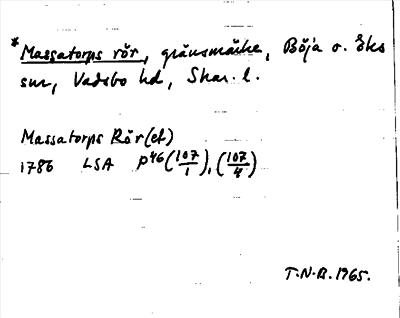 *Massatorps rör, gränsmärke, Böja o. Eks
snr, Vadsbo hd, Skar. l.
Massatorps Rör(et)
1786 LSA P46 (107/1), (107/4)
T.N.A. 1965.